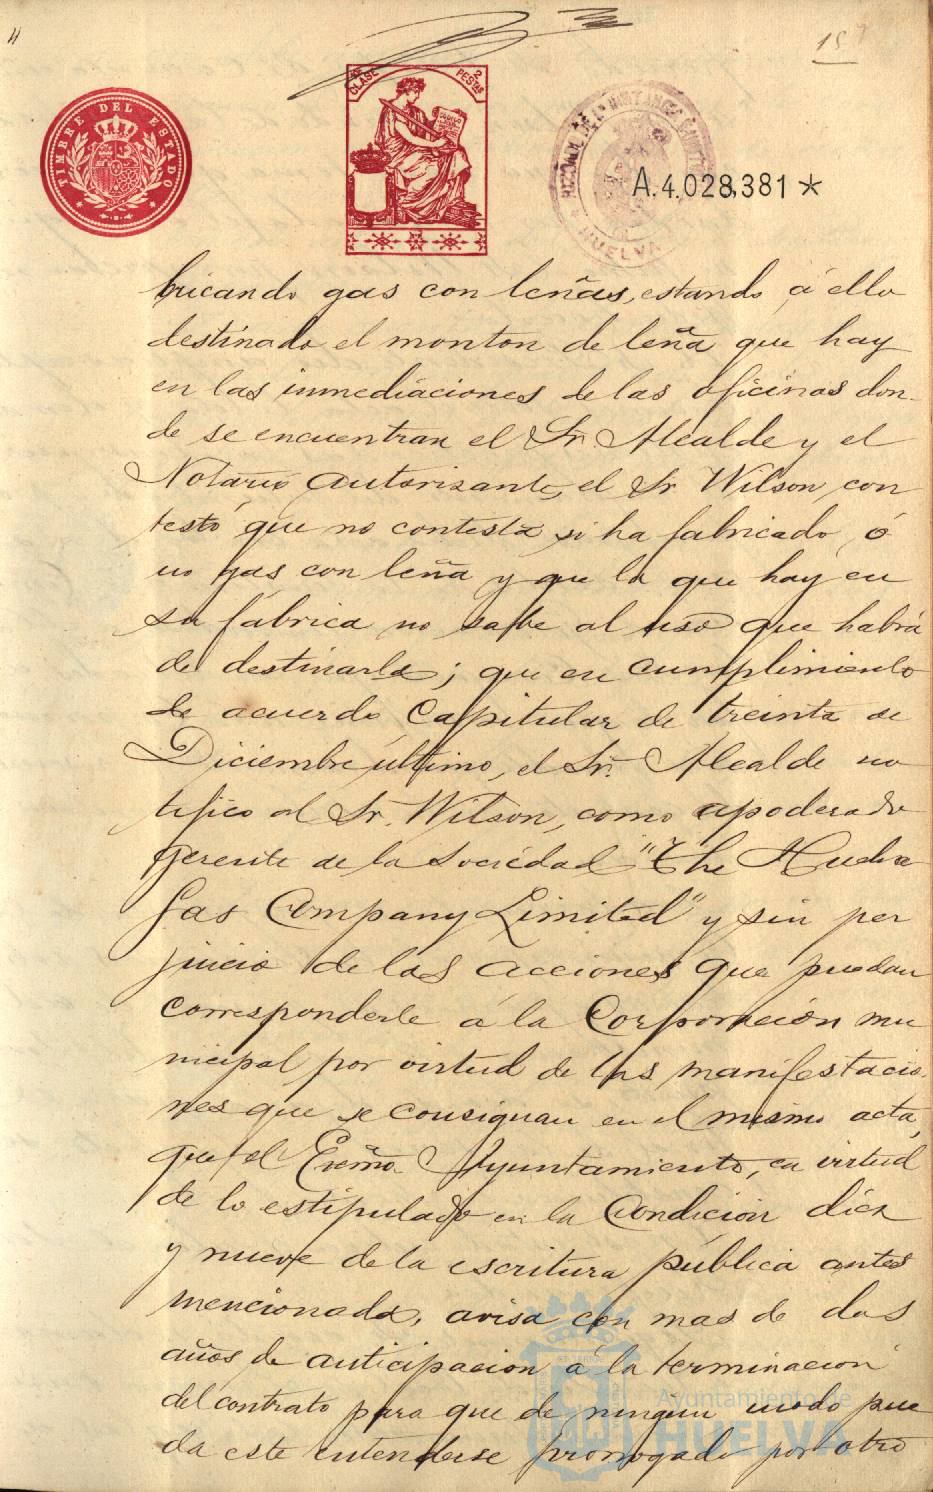 15
TIMBRE DEL ESTADO
CLASE
2 PESTAS
HUELVA
A.4.028,381 *
bricando gas con leñas, estando á ello
destinado el monton de leña que hay
en las inmediaciones de las oficinas don-
de se encuentran el Sr. Alcalde y el
Notario autorizante, el Sr Wilson con
testó que no contesta si ha fabricado ó
no gas con leña y que la que hay en
su fábrica no sabe al uso que habrá
de destinarla; que en cumplimiento
de acuerdo Capitular de treinta de
Diciembre último, el Sr. Alcalde no
tificó al Sr. Wilson, como apoderado
gerente de la Sociedad "The Huelva
Gas Company Limited" y sin per
juicio de las acciones que puedan
corresponderle á la Corporación mu
nicipal por virtud de las manifestacio
nes que se consignan en el mismo acta,
que el Excmo. Ayuntamiento, en virtud
de lo estipulado en la Condicion diez
y nueve de la escritura pública antes
mencionada, avisa con mas de dos
años de anticipacion á la terminacion
del contrato para que de ningun modo pue
da este entenderse prorrogado por otro
Ayuntamiento de
HUELVA